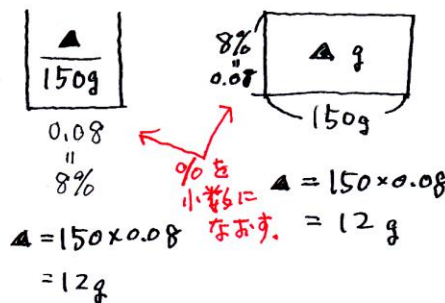 ▲
150g
0.08
=
8%
▲=150×0.08
=12g
8%
=
0.08
▲ g
150g
%を
小数に
なおす。
▲=150×0.08
=12 g